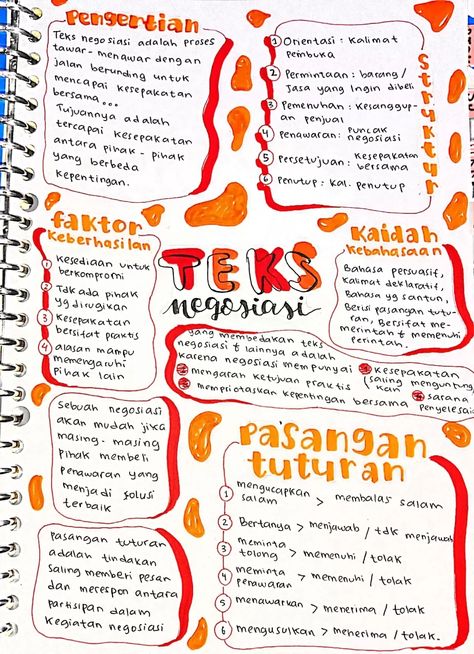 Pengertian
Teks negosiasi adalah proses
tawar-menawar dengan
jalan berunding untuk
mencapai kesepakatan
bersama...
Tujuannya adalah
tercapai kesepakatan
antara pihak-pihak
yang berbeda
kepentingan.
Struktur
1 Orientasi : Kalimat
Pembuka
2 Permintaan : barang /
Jasa yang ingin dibeli
3 Pemenuhan : Kesanggup-
an penjual
4 Penawaran : Puncak
negosiasi
5 Persetujuan : Kesepakatan
bersama
6 Penutup : Kal. penutup
faktor
Keberhasilan
1 Kesediaan untuk
berkompromi
2 Tdk ada pihak
yg dirugikan
3 Kesepakatan
bersifat praktis
4 alasan mampu
memengaruhi
Pihak lain
TEKS
negosiasi
Kaidah
Kebahasaan
Bahasa persuasif,
kalimat deklaratif,
Bahasa yg santun,
Berisi pasangan tutu-
ran, Bersifat me-
merintah & memenuhi
perintah.
yang membedakan teks
negosiasi & lainnya adalah
karena negosiasi mempunyai
mengarah ketujuan praktis
memprioritaskan kepentingan bersama
kesepakatan
(saling menguntung
kan
Sarana
Penyelesai
Sebuah negosiasi
akan mudah jika
masing-masing
Pihak memberi
Penawaran yang
menjadi solusi
terbaik
Pasangan tuturan
adalah tindakan
saling memberi pesan
dan merespon antara
partisipan dalam
kegiatan negosiasi
Pasangan
tuturan
1 mengucapkan salam > membalas salam
2 Bertanya > menjawab / tdk menjawab
3 meminta tolong > memenuhi / tolak
4 meminta penawaran > memenuhi / tolak
5 menawarkan > menerima / tolak
6 mengusulkan > menerima / tolak.